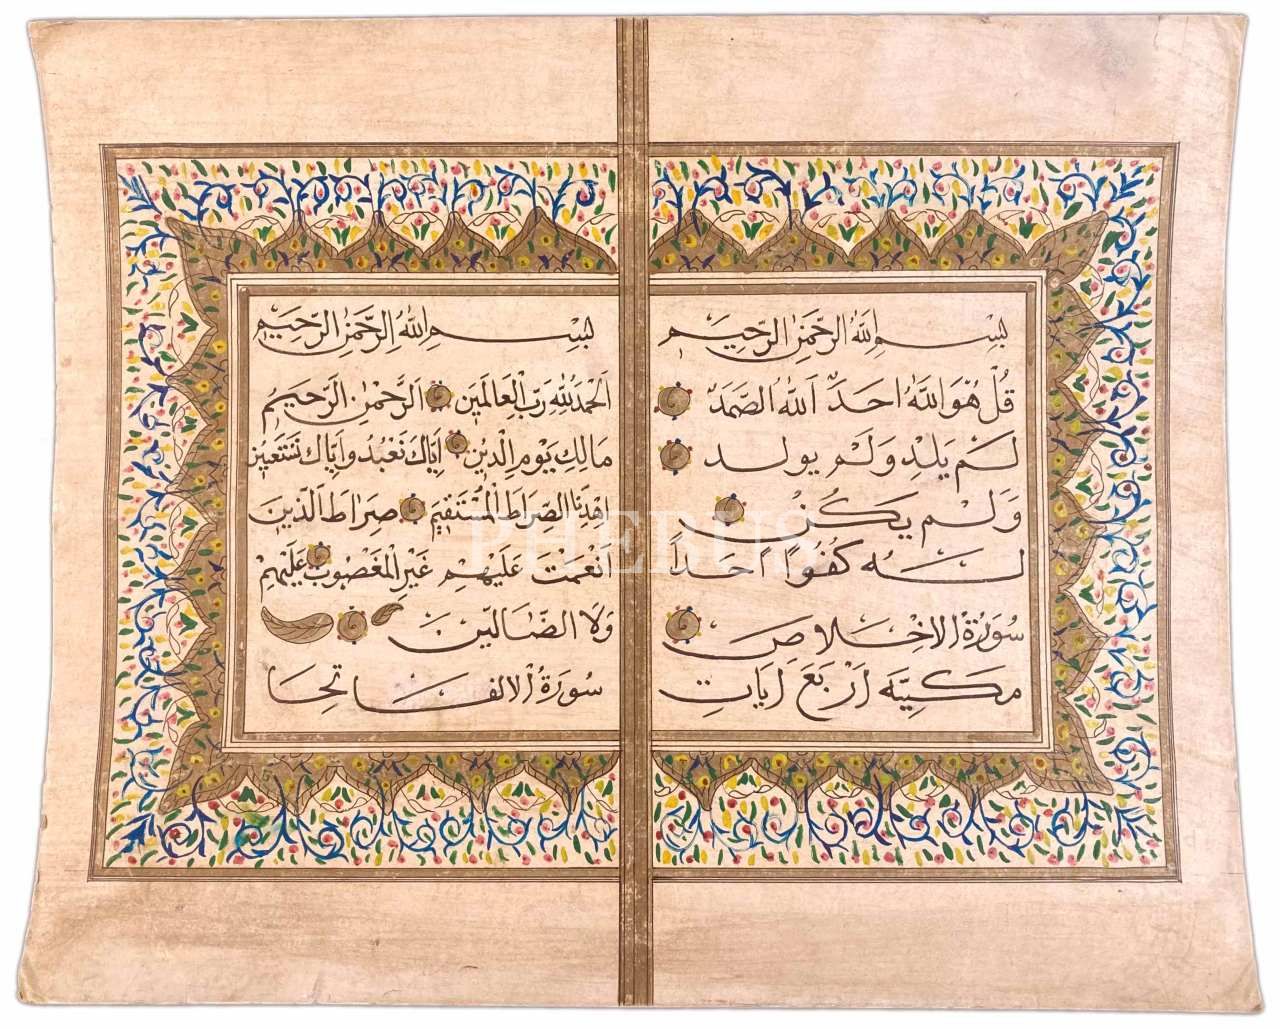 بسم الله الرحمن الرحيم
قُلْ هُوَ اللّٰهُ اَحَدٌ اَللّٰهُ الصَّمَدُ
لَمْ يَلِدْ وَلَمْ يولد
وَلَمْ يَكُنْ
لَهُ كُفُوًا اَحَدًا
سُورَةُ الاخْلاص
مَكِّيَّه اَرْبَعَ اٰيَاتِ
بسم الله الرحمن الرحيم
اَلْحَمْدُ لِلّٰهِ رَبِّ الْعَالَمِينَ اَلرَّحْمٰنِ الرَّحِيمِ
مَالِكِ يَوْمِ الدِّينِ اِيَّاكَ نَعْبُدُ وَاِيَّاكَ نَسْتَعِينُ
اهْدِنَا الصِّرَاطَ الْمُسْتَقِيمَ صِرَاطَ الَّذِينَ
اَنْعَمْتَ عَلَيْهِمْ غَيْرِ الْمَغْضُوبِ عَلَيْهِمْ
وَلَا الضَّالِّينَ
سُورَةُ الالفاتحا
PHEBUS